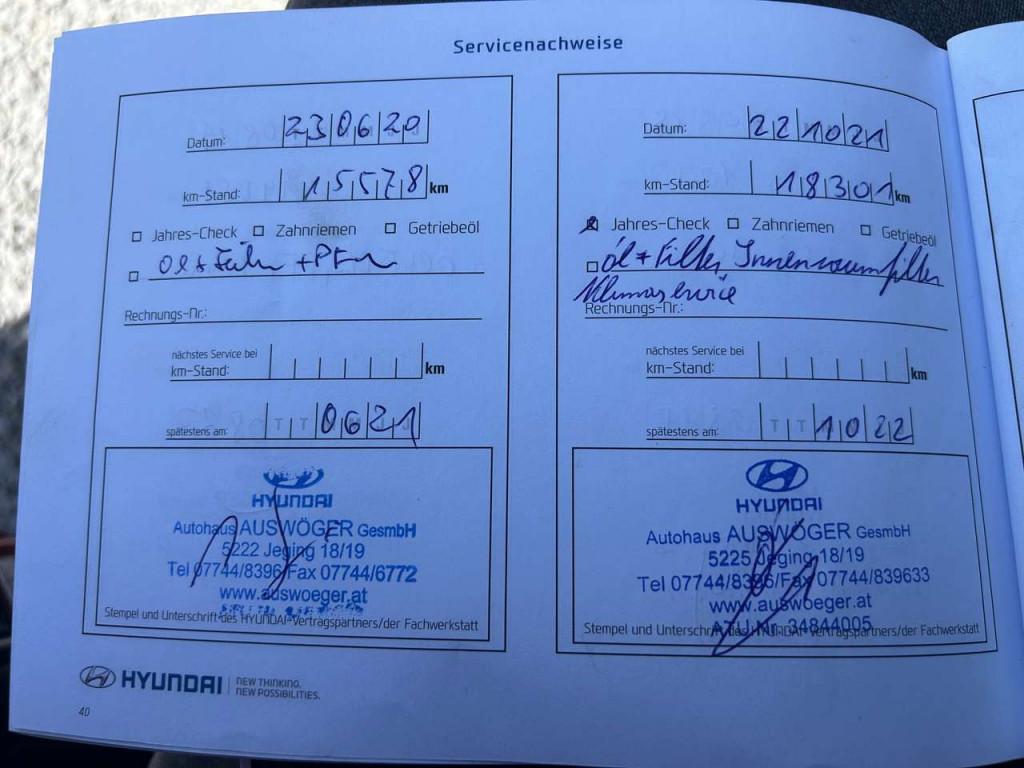 Servicenachweise
Datum: 230620
km-Stand: 15578 km
Jahres-Check Zahnriemen Getriebeöl
Rechnungs-Nr.:
nächstes Service bei
km-Stand: km
spätestens am: TT 0621
HYUNDAI
Autohaus AUSWÖGER GesmbH
5222 Jeging 18/19
Tel 07744/8396/Fax 07744/6772
www.auswoeger.at
Stempel und Unterschrift des HYUNDAI-Vertragspartners/der Fachwerkstatt
Datum: 221021
km-Stand: 18301 km
Jahres-Check Zahnriemen Getriebeöl
öl + Filter Innenraumfilter
Klimaservice
Rechnungs-Nr.:
nächstes Service bei
km-Stand: km
spätestens am: TT 1022
HYUNDAI
Autohaus AUSWÖGER GesmbH
5225 Jeging 18/19
Tel 07744/8396/Fax 07744/839633
www.auswoeger.at
ATU Nr. 34844005
Stempel und Unterschrift des HYUNDAI-Vertragspartners/der Fachwerkstatt
HYUNDAI NEW THINKING.
NEW POSSIBILITIES.
40